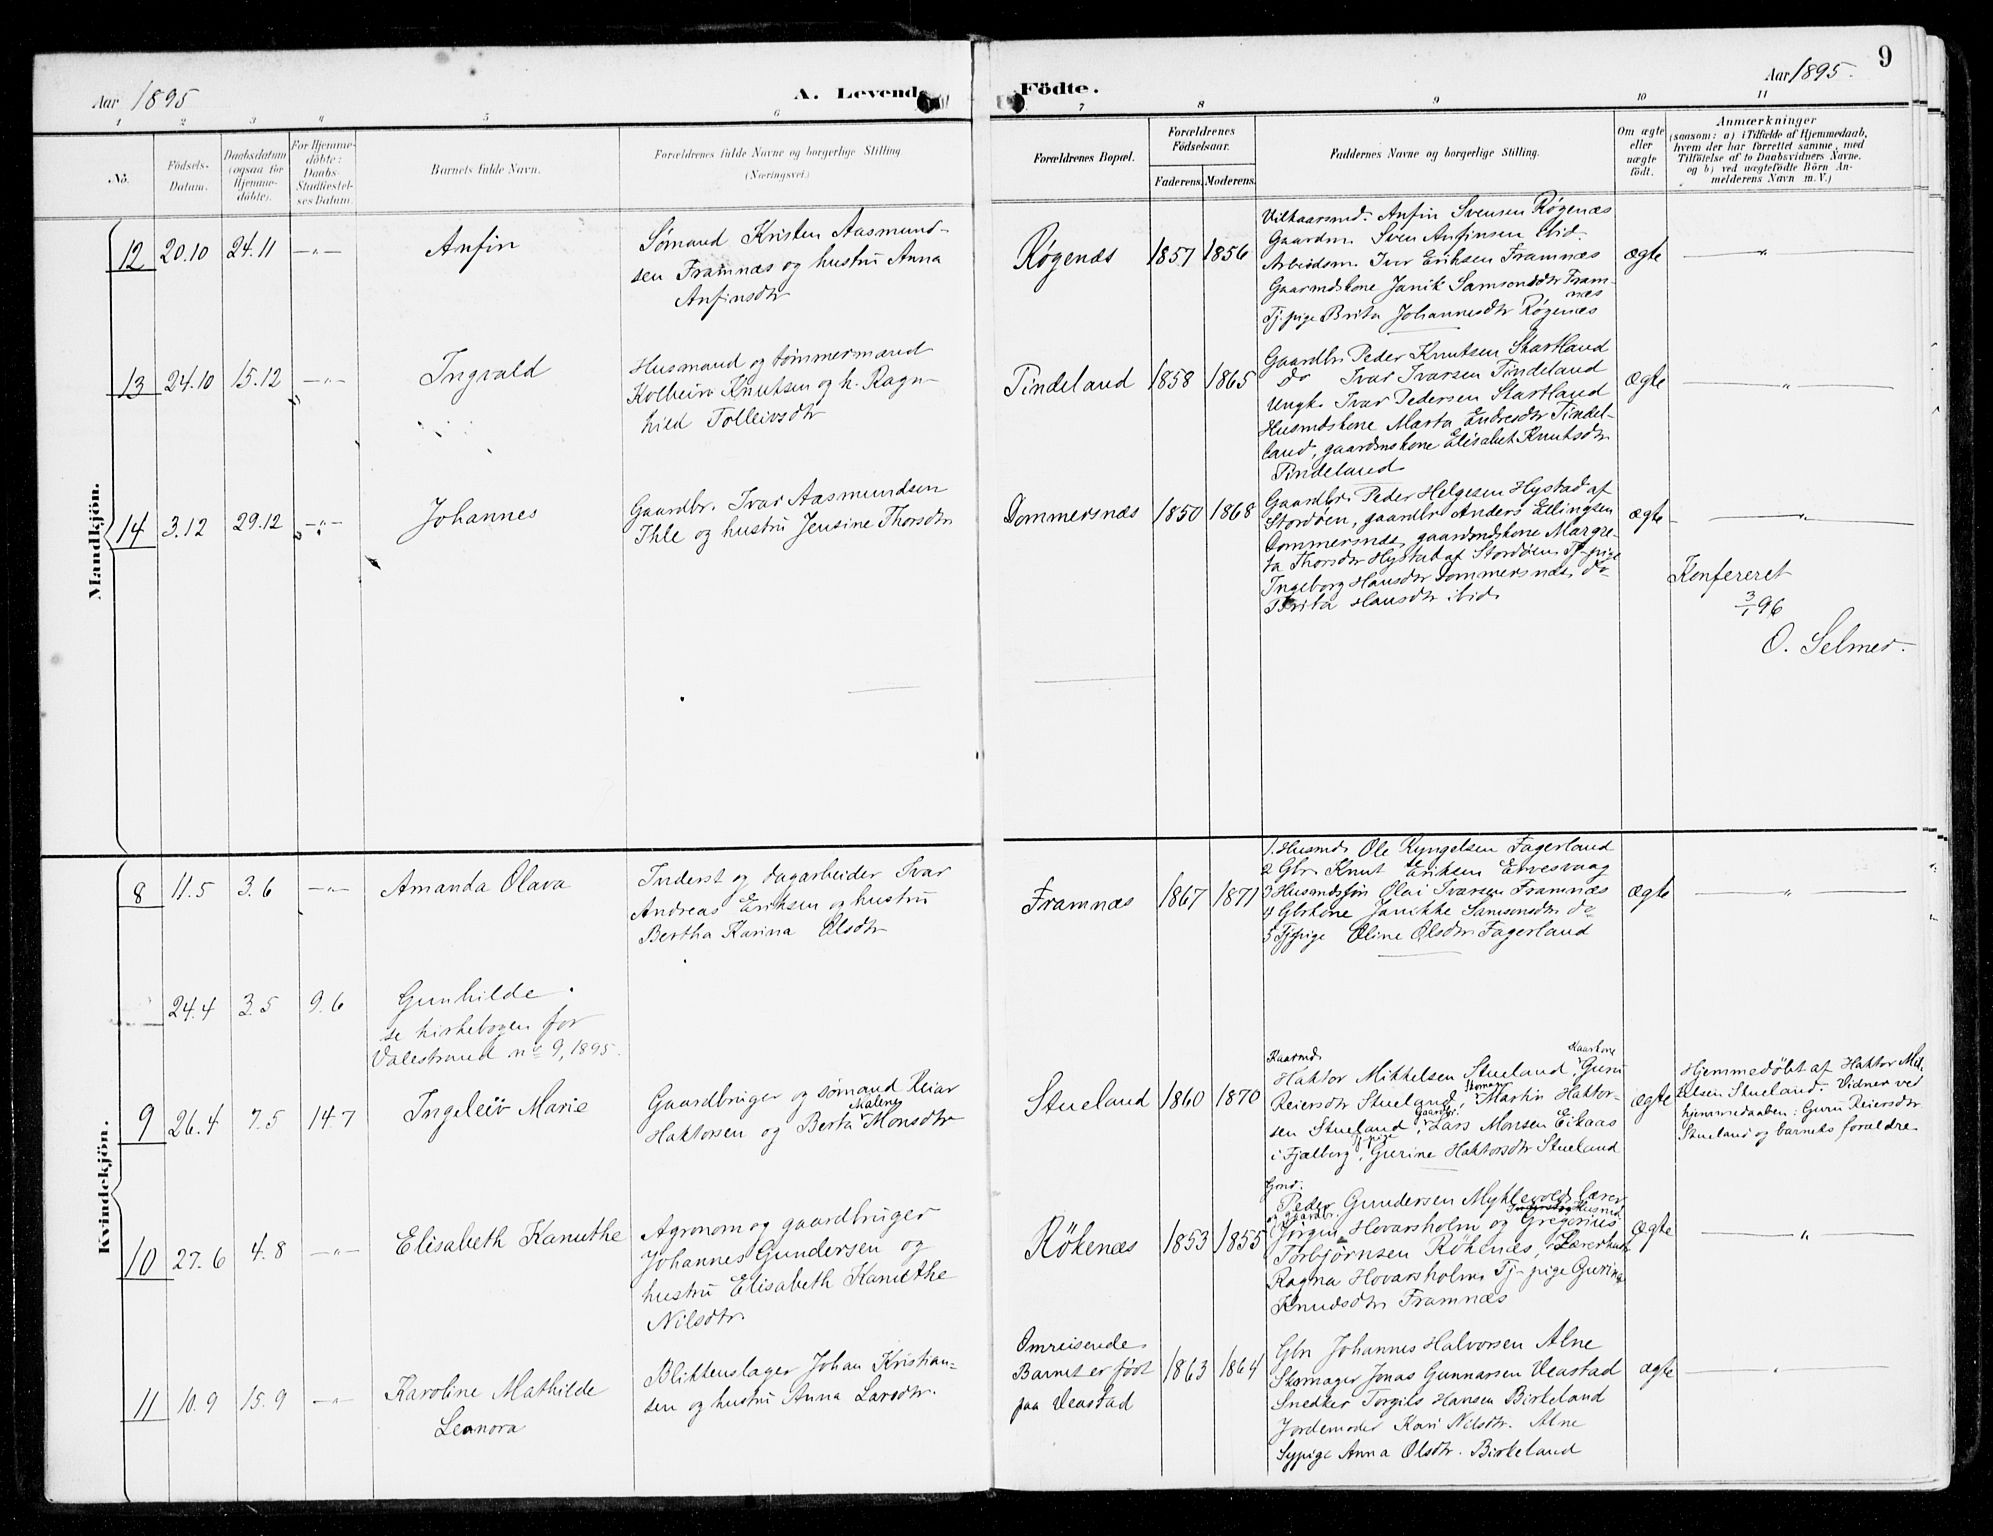 9
Aar 1895
A. Levende
Födte.
Aar 1895.
1 2 3 4 5 6 7 8 9 10 11
No.
Födsels-
Datum.
Daabsdatum
(ogsaa för
Hjemme-
döbte).
For Hjemme-
döbte:
Daabs-
Stadfæstel-
ses Datum.
Barnets fulde Navn.
Forældrenes fulde Navne og borgerlige Stilling
(Næringsvei.)
Forældrenes Bopæl.
Forældrenes
Födselsaar.
Faderens.
Moderens.
Faddernes Navne og borgerlige Stilling.
Om ægte
eller
uægte
födt.
Anmærkninger
(saasom: a) i Tilfælde af Hjemmedaab,
hvem der har forrettet samme, med
Tilföielse af to Daabsvidners Navne.
og b) ved uægtefödte Börn An-
melderens Navn m. V.)
Mandkjön.
12
20.10
24.11
—„—
Anfin
Sømand Kristen Aasmund-
sen Framnæs og hustru Anna
Anfinsdtr
Røgenæs
1857
1856
Vilkaarsmd. Anfin Svensen Røgenæs
Gaardm. Sven Anfinsen ibid.
Arbeidsm. Iver Eriksen Framnæs
Gaarmdskone Janik Samsonsdtr Fram-
næs
Tj. pige Brita Johannesdtr Røgenæs
ægte
—„—
13
24.10
15.12
—„—
Ingvald
Husmand og tømmermand
Kolbeirn Knutsen og h. Ragn-
hild Tolleivsdtr
Tindeland
1858
1865
Gaardbr. Peder Knutsen Skartland
do Ivar Ivarsen Tindeland
Ungk. Ivar Pedersen Skartland
Husmdskone Marta Endresdtr Tindel-
land, gaardmskone Elisabet Knutsdtr
Tindeland
ægte
—„—
14
3.12
29.12
—„—
Johannes
Gaardbr. Ivar Aasmundsen
Ihle og hustru Jensine Thorsdtr
Dommersnæs
1850
1868
Gaardbr. Peder Helgesen Hystad af
Stordøen, gaardbr Anders Ellingsen
Dommersnæs, gaardmdskone Margre-
ta Thorsdtr Hystad af Stordøen, Tj-pige
Ingeborg Hansdtr Dommersnæs, do
Brita Hansdtr ibid.
ægte
—„—
Konfereret
3/1 96
O. Selmer.
Kvindekjön.
8
11.5
3.6
—„—
Amanda Olava
Inderst og dagarbeider Ivar
Andreas Eriksen og hustru
Bertha Karina Olsdtr
Framnæs
1867
1871
1. Husmd. Ole Ryngelsen Fagerland
2 Gbr. Knut Eriksen Etvesvaag
3 Husmdsføn Olai Ivarsen Framnæs
4 Gbrkone Janikke Samsonsdtr do
5 Tjpige Oline Olsdtr Fagerland
ægte
—„—
24.4
3.5
9.6
Gunhilde.
se kirkebogen for
Valestrand no 9, 1895.
9
26.4
7.5
14.7
Ingeleiv Marie
Gaardbruger og sømand Reiar
Malene
Haktorsen og Berta Monsdtr
Stueland
1860
1870
Kaarmd. Kaarkone
Haktor Mikkelsen Stueland, Guru
Skomag.
Reiersdtr Stueland, Martin Haktor-
Gaardbr.
sen Stueland, Lars Monsen Eikaas
Tj-pige
i Fjælberg, Gurine Haktorsdtr Stueland
ægte
Hjemmedøbt af Haktor Mik-
kelsen Stueland. Vidner ved
hjemmedaaben: Guru Reiersdtr
Stueland og barnets forældre
10
27.6
4.8
—„—
Elisabeth Kanuthe
Agronom og gaardbruger
Johannes Gundersen og
hustru Elisabeth Kanuthe
Nilsdtr.
Rökenæs
1853
1855
Gmd.
Peder Gundersen Myklevold, lærer
og gaardbr. Husmd.
Jørgen Hovarsholm og Gregorius
Torbjørnsen Rökenæs, Lærerhustr
Ragna Hovarsholm, Tj-pige Gurina
Knudsdtr Framnæs
ægte
—„—
11
10.9
15.9
—„—
Karoline Mathilde
Leonora
Blikkenslager Johan Kristian-
sen og hustru Anna Larsdtr.
Omreisende
Barnet er født
paa Veastad
1863
1864
Gbr Johannes Halvorsen Alne
Skomager Jonas Gunnarsen Veastad
Snedker Torgils Hansen Birkeland
Jordemoder Kari Nilsdtr. Alne
Sypige Anna Olsdtr. Birkeland
ægte
—„—